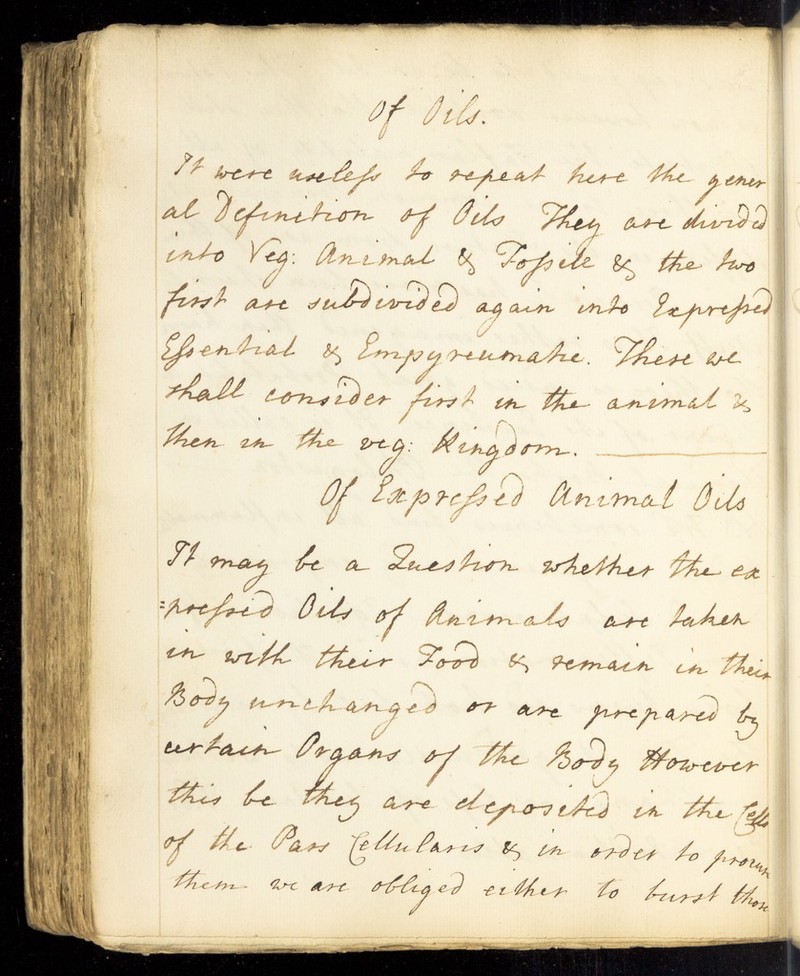 Of Oils.
It were useless to repeat here the gener
al Definition of Oils They are divided
into Veg: Animal & Fossile & the two
first are subdivided again into Expressed
Essential & Empyreumatic. These we
shall consider first in the animal &
then in the veg: Kingdom.
Of Expressed Animal Oils
It may be a Question whether the ex
=pressed Oils of Animals are taken
in with their Food & remain in their
Body unchanged or are prepared by
certain Organs of the Body However
this be they are deposited in the Cells
of the Pars Cellularis & in order to procure
them we are obliged either to burst those